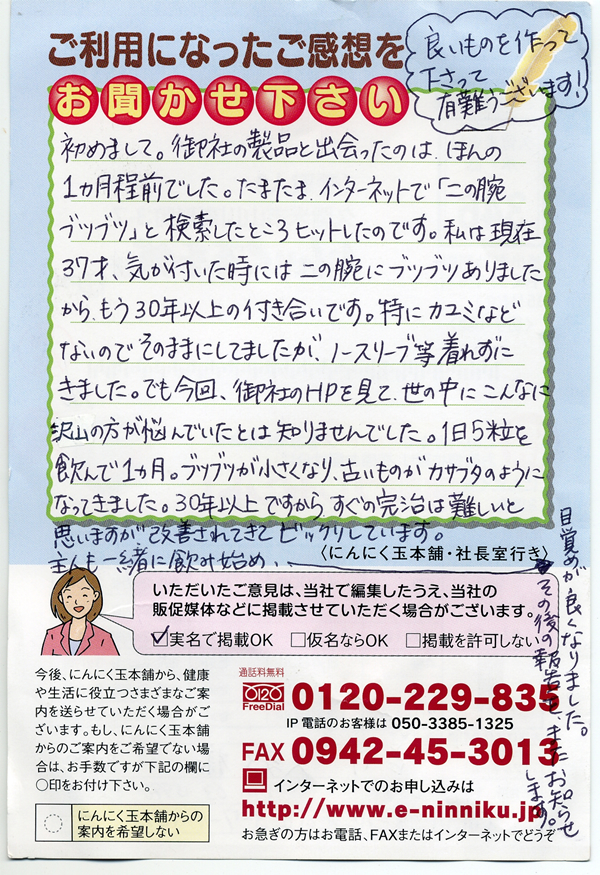 ご利用になったご感想を
お聞かせ下さい
良いものを作って
下さって
有難うございます!
初めまして。御社の製品と出会ったのは、ほんの
1ヵ月程前でした。たまたま、インターネットで「二の腕
ブツブツ」と検索したところヒットしたのです。私は現在
37才、気が付いた時には二の腕にブツブツありました
から、もう30年以上の付き合いです。特にカユミなど
ないのでそのままにしてましたが、ノースリーブ等着れずに
きました。でも今回、御社のHPを見て、世の中にこんなに
沢山の方が悩んでいたとは知りませんでした。1日5粒を
飲んで1ヵ月。ブツブツが小さくなり、古いものがカサブタのように
なってきました。30年以上ですから、すぐの完治は難しいと
思いますが改善されてきてビックリしています。
主人も一緒に飲み始め、
目覚めが良くなりました。
その後の報告も、またお知らせ
します。
〈にんにく玉本舗・社長室行き〉
いただいたご意見は、当社で編集したうえ、当社の
販促媒体などに掲載させていただく場合がございます。
☑実名で掲載OK □仮名ならOK □掲載を許可しない
今後、にんにく玉本舗から、健康
や生活に役立つさまざまなご案
内を送らせていただく場合がご
ざいます。もし、にんにく玉本舗
からのご案内をご希望でない場
合は、お手数ですが下記の欄に
○印をお付け下さい。
にんにく玉本舗からの
案内を希望しない
通話料無料
0120
FreeDial
0120-229-835
IP電話のお客様は 050-3385-1325
FAX 0942-45-3013
インターネットでのお申し込みは
http://www.e-ninniku.jp
お急ぎの方はお電話、FAXまたはインターネットでどうぞ